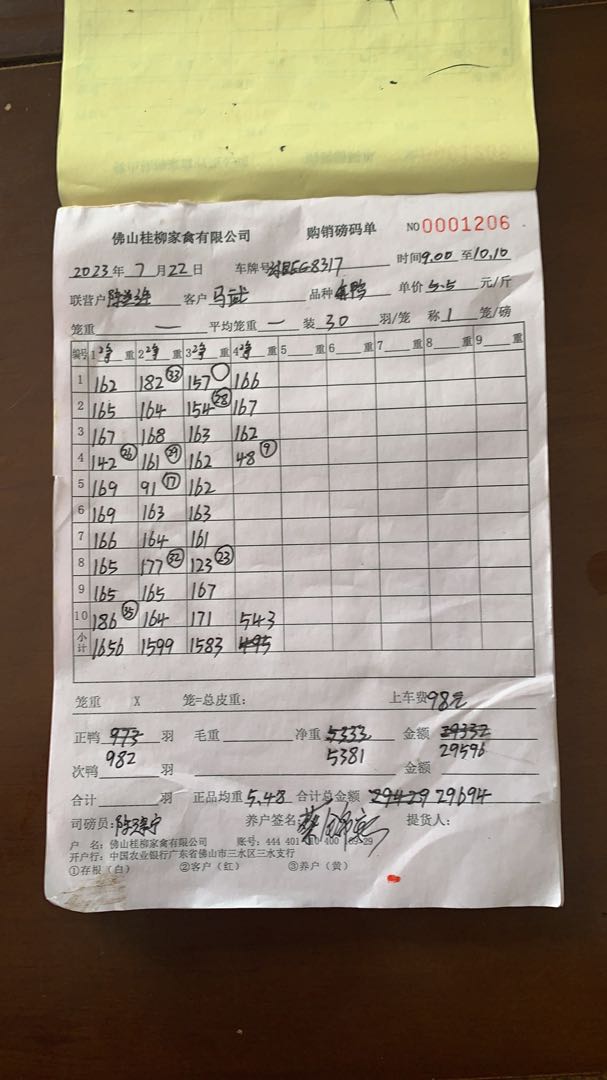 佛山桂柳家禽有限公司 购销磅码单 NO 0001206
2023年7月22日 车牌号 G8317 时间9.00至10.10
联营户 客户 马武 品种 鸭 单价5.5元/斤
笼重 — 平均笼重 — 装30羽/笼 称1笼/磅
编号 1净重 2净重 3净重 4净重 5重 6重 7重 8重 9重
1 162 182 33 157 166
2 165 164 154 28 167
3 167 168 163 162
4 142 26 161 29 162 48 9
5 169 91 17 162
6 169 163 163
7 166 164 161
8 165 177 32 123 23
9 165 165 167
10 186 35 164 171 543
小计 1656 1599 1583 495
笼重 X 笼=总皮重: 上车费98元
正鸭 973 羽 毛重 净重 5333 金额 29332
982 5381 29596
次鸭 羽 金额
合计 羽 正品均重 5.48 合计总金额 29429 29694
司磅员: 养户签名: 提货人:
户 名: 佛山桂柳家禽有限公司 账号: 444 401 400 29
开户行: 中国农业银行广东省佛山市三水区三水支行
①存根(白) ②客户(红) ③养户(黄)